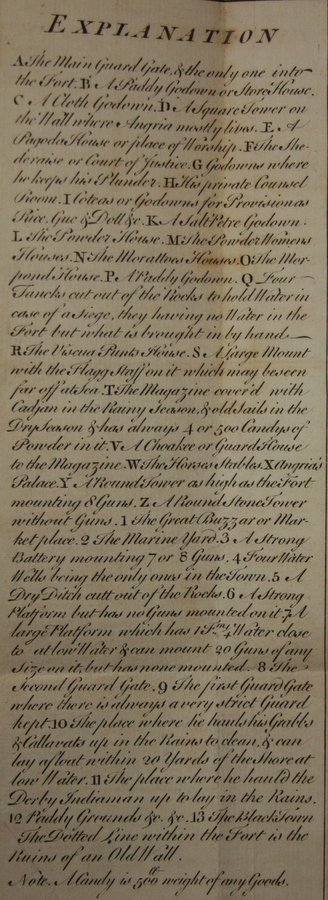 EXPLANATION
A The Main Guard Gate, & the only one into
the Fort. B A Paddy Godown or Store House.
C A Cloth Godown. D A Square Tower on
the Wall where Angria mostly lives. E A
Pagoda House or place of Worship. F The She-
deraise or Court of Justice. G Godowns where
he keeps his Plunder. H His private Counsel
Room. I Coteas or Godowns for Provision as
Rice, Gue & Doll &c. K A Salt Petre Godown.
L The Powder House. M The Powder Womens
Houses. N The Morattoes Houses. O The Mor-
pond House. P A Paddy Godown. Q Four
Tancks cut out of the Rocks to hold Water in
case of a Siege, they having no Water in the
Fort but what is brought in by hand
R The Viscua Punts House. S A Large Mount
with the Flagg Staff on it which may be seen
far off at Sea. T The Magazine cover'd with
Cadjan in the Rainy Season, & old Sails in the
Dry Season & has always 4 or 500 Candys of
Powder in it. V A Choakee or Guard House
to the Magazine. W The Horses Stables. X Angria's
Palace. Y A Round Tower as high as the Fort
mounting 8 Guns. Z A Round Stone Tower
without Guns. 1 The Great Buzzar or Mar-
ket place. 2 The Marine Yard. 3 A Strong
Battery mounting 7 or 8 Guns. 4 Four Water
Wells being the only ones in the Town. 5 A
Dry Ditch cutt out of the Rocks. 6 A Strong
Platform but has no Guns mounted on it. 7 A
large Platform which has Water close
to at low Water & can mount 20 Guns of any
Size on it, but has none mounted. 8 The
Second Guard Gate. 9 The first Guard Gate
where there is always a very strict Guard
kept. 10 The place where he hauls his Grabbs
& Gallavats up in the Rains to clean, & can
lay afloat within 20 Yards of the Shore at
low Water. 11 The place where he haul'd the
Derby Indiaman up to lay in the Rains.
12 Paddy Grounds &c. &c. 13 The Black Town
The Dotted Line within the Fort is the
Ruins of an Old Wall.
Note. A Candy is 500 weight of any Goods.